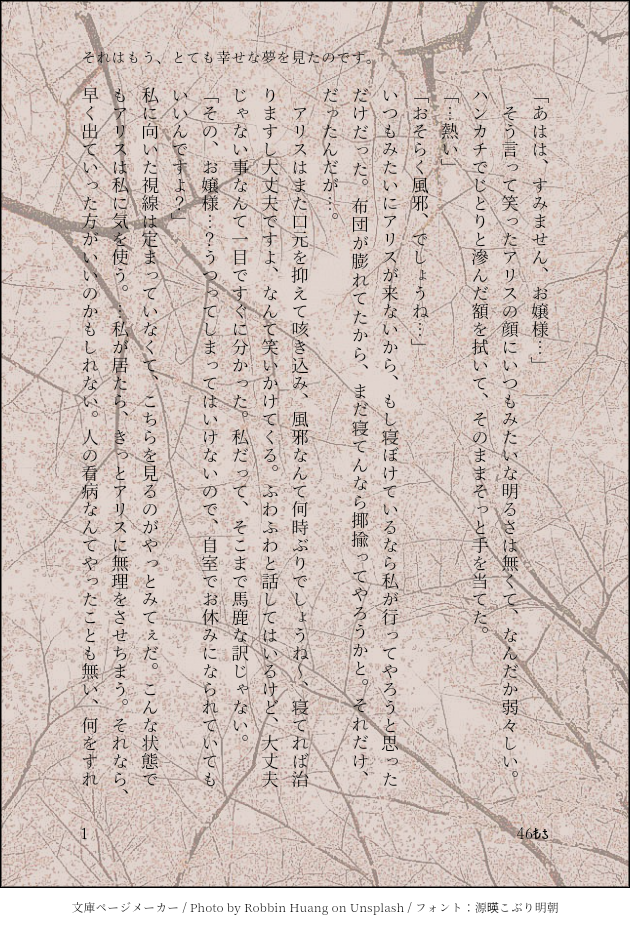 それはもう、とても幸せな夢を見たのです。
「あはは、すみません、お嬢様…」
そう言って笑ったアリスの顔にいつもみたいな明るさは無くて、なんだか弱々しい。
ハンカチでじとりと滲んだ額を拭いて、そのままそっと手を当てた。
「…熱い」
「おそらく風邪、でしょうね…」
いつもみたいにアリスが来ないから、もし寝ぼけているなら私が行ってやろうと思った
だけだった。布団が膨れてたから、まだ寝てんなら揶揄ってやろうかと。それだけ、
だったんだが…。
アリスはまた口元を抑えて咳き込み、風邪なんて何時ぶりでしょうね〜、寝てれば治
りますし大丈夫ですよ、なんて笑いかけてくる。ふわふわと話してはいるけど、大丈夫
じゃない事なんて一目ですぐに分かった。私だって、そこまで馬鹿な訳じゃない。
「その、お嬢様…？うつってしまってはいけないので、自室でお休みになられていても
いいんですよ？」
私に向いた視線は定まっていなくて、こちらを見るのがやっとみてぇだ。こんな状態で
もアリスは私に気を使う。…私が居たら、きっとアリスに無理をさせちまう。それなら、
早く出ていった方がいいのかもしれない。人の看病なんてやったことも無い、何をすれ
1
46もち
文庫ページメーカー / Photo by Robbin Huang on Unsplash / フォント：源暎こぶり明朝